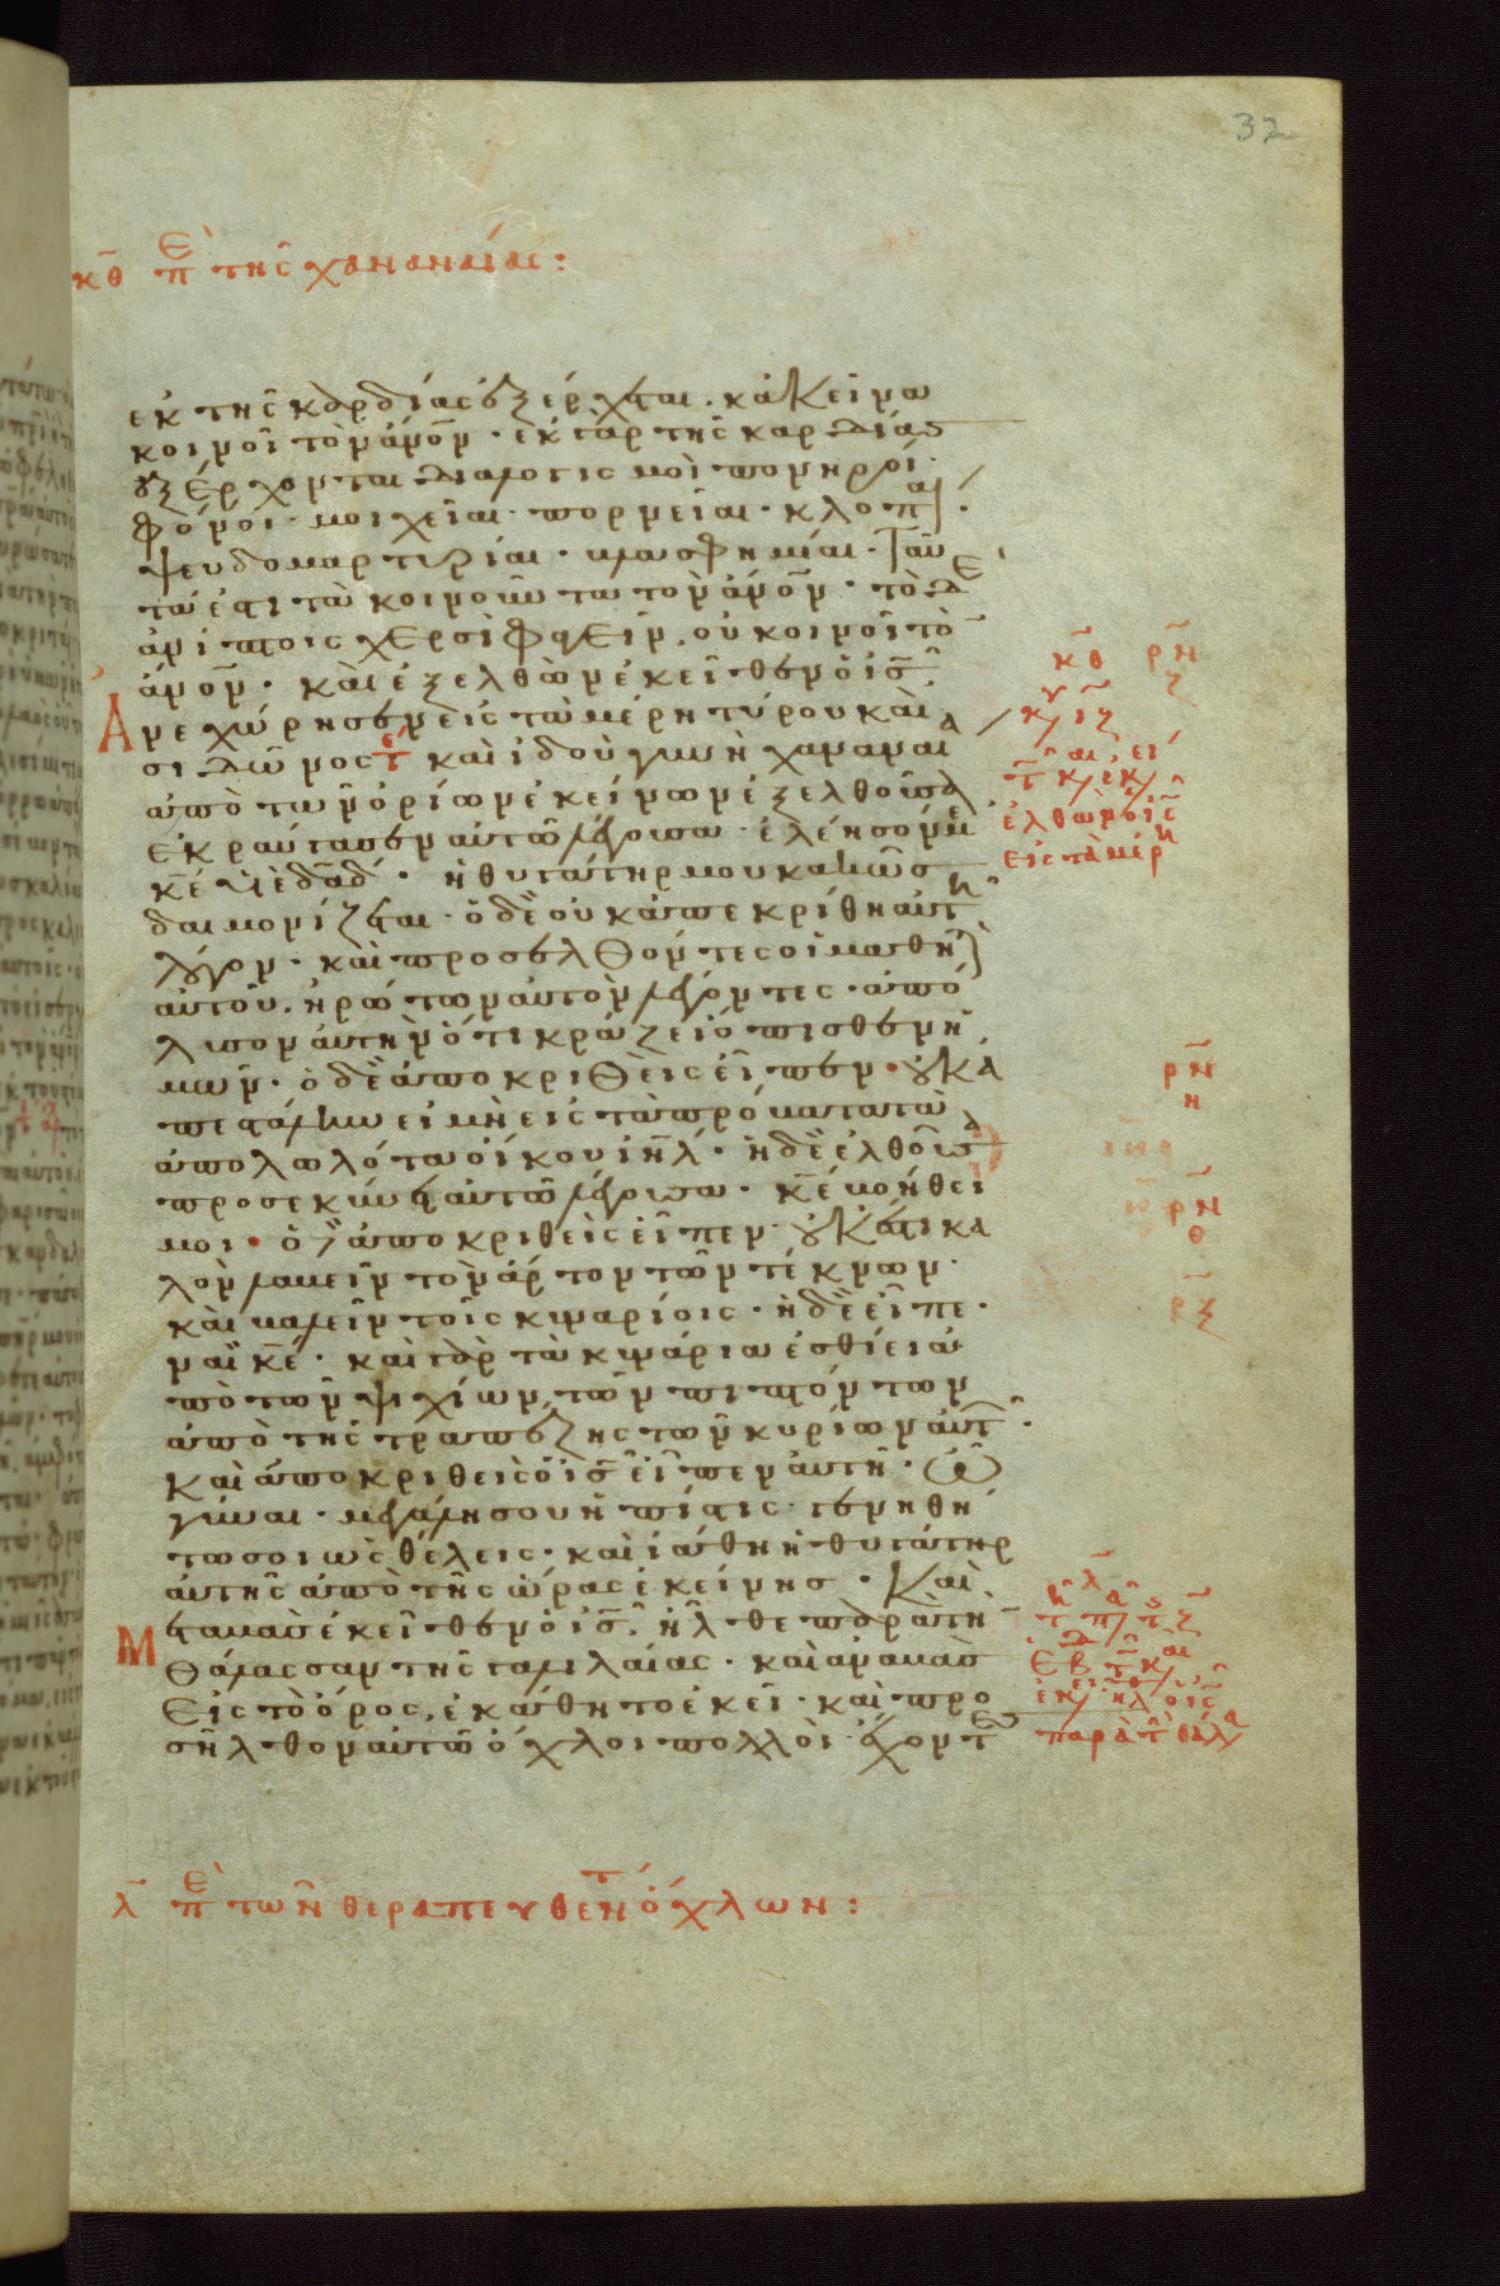 32
κθ Επὶ τῆς χαναναίας:
ἐκ τῆς καρδίας ἐξέρχεται· κἀκεῖνα
κοινοῖ τὸν ἄνο̅ν· ἐκ γὰρ τῆς καρδίας
ἐξέρχονται διαλογισμοὶ πονηροί·
φόνοι· μοιχεῖαι· πορνεῖαι· κλοπαί·
ψευδομαρτυρίαι· βλασφημίαι· ταῦ
τά ἐστι τὰ κοινοῦντα τὸν ἄνο̅ν· τὸ δὲ
ἀνίπτοις χερσὶ φαγεῖν, οὐ κοινοῖ τὸ̅
ἄνο̅ν· καὶ ἐξελθὼν ἐκεῖθεν ὁ ἰς̅
Ἀνεχώρησεν εἰς τὰ μέρη τύρου καὶ
σιδῶνος· καὶ ἰδοὺ γυνὴ χαναναία
ἀπὸ τῶν ὁρίων ἐκείνων ἐξελθοῦσα
ἐκραύγασεν αὐτῶ λέγουσα· ἐλέησόν με
κε̅ υἱὲ δαδ̅· ἡ θυγάτηρ μου κακῶς
δαιμονίζεται· ὁ δὲ οὐκ ἀπεκρίθη αὐτῆ
λόγον· καὶ προσελθόντες οἱ μαθηταὶ
αὐτοῦ, ἠρώτων αὐτὸν λέγοντες· ἀπό
λυσον αὐτὴν ὅτι κράζει ὄπισθεν ἡ
μῶν· ὁ δὲ ἀποκριθεὶς εἶπεν· οὐκ ἀ
πεστάλην εἰ μὴ εἰς τὰ πρόβατα τὰ
ἀπολωλότα οἴκου ιη̅λ· ἡ δὲ ἐλθοῦσα
προσεκύνει αὐτῶ λέγουσα· κε̅ βοήθει
μοι· ὁ δὲ ἀποκριθεὶς εἶπεν· οὐκ ἔστι κα
λὸν λαβεῖν τὸν ἄρτον τῶν τέκνων·
καὶ βαλεῖν τοῖς κυναρίοις· ἡ δὲ εἶπε·
ναὶ κε̅· καὶ γὰρ τὰ κυνάρια ἐσθίει ἀ
πὸ τῶν ψιχίων, τῶν πιπτόντων
ἀπὸ τῆς τραπέζης τῶν κυρίων αὐτ·
Καὶ ἀποκριθεὶς ὁ ἰς̅ εἶπεν αὐτῆ· ὦ
γύναι· μεγάλη σου ἡ πίστις· γενηθή
τω σοι ὡς θέλεις· καὶ ἰάθη ἡ θυγάτηρ
αὐτῆς ἀπὸ τῆς ὥρας ἐκείνης· Καὶ
Μεταβὰς ἐκεῖθεν ὁ ἰς̅, ἦλθε παρὰ τὴ̅
θάλασσαν τῆς γαλιλαίας· καὶ ἀναβὰς
Εἰς τὸ ὄρος, ἐκάθητο ἐκεῖ· καὶ προ
σῆλθον αὐτῶ ὄχλοι πολλοὶ ἔχοντες
κθ ρν̅ζ
ἐλθὼν ὁ ις̅
εἰς τὰ μέρη
ρν̅η
ρν̅θ
ρξ̅
λ̅
παρὰ τ̅ θάλα
λ̅ Επὶ τῶν θεραπευθέντ ὄχλων: